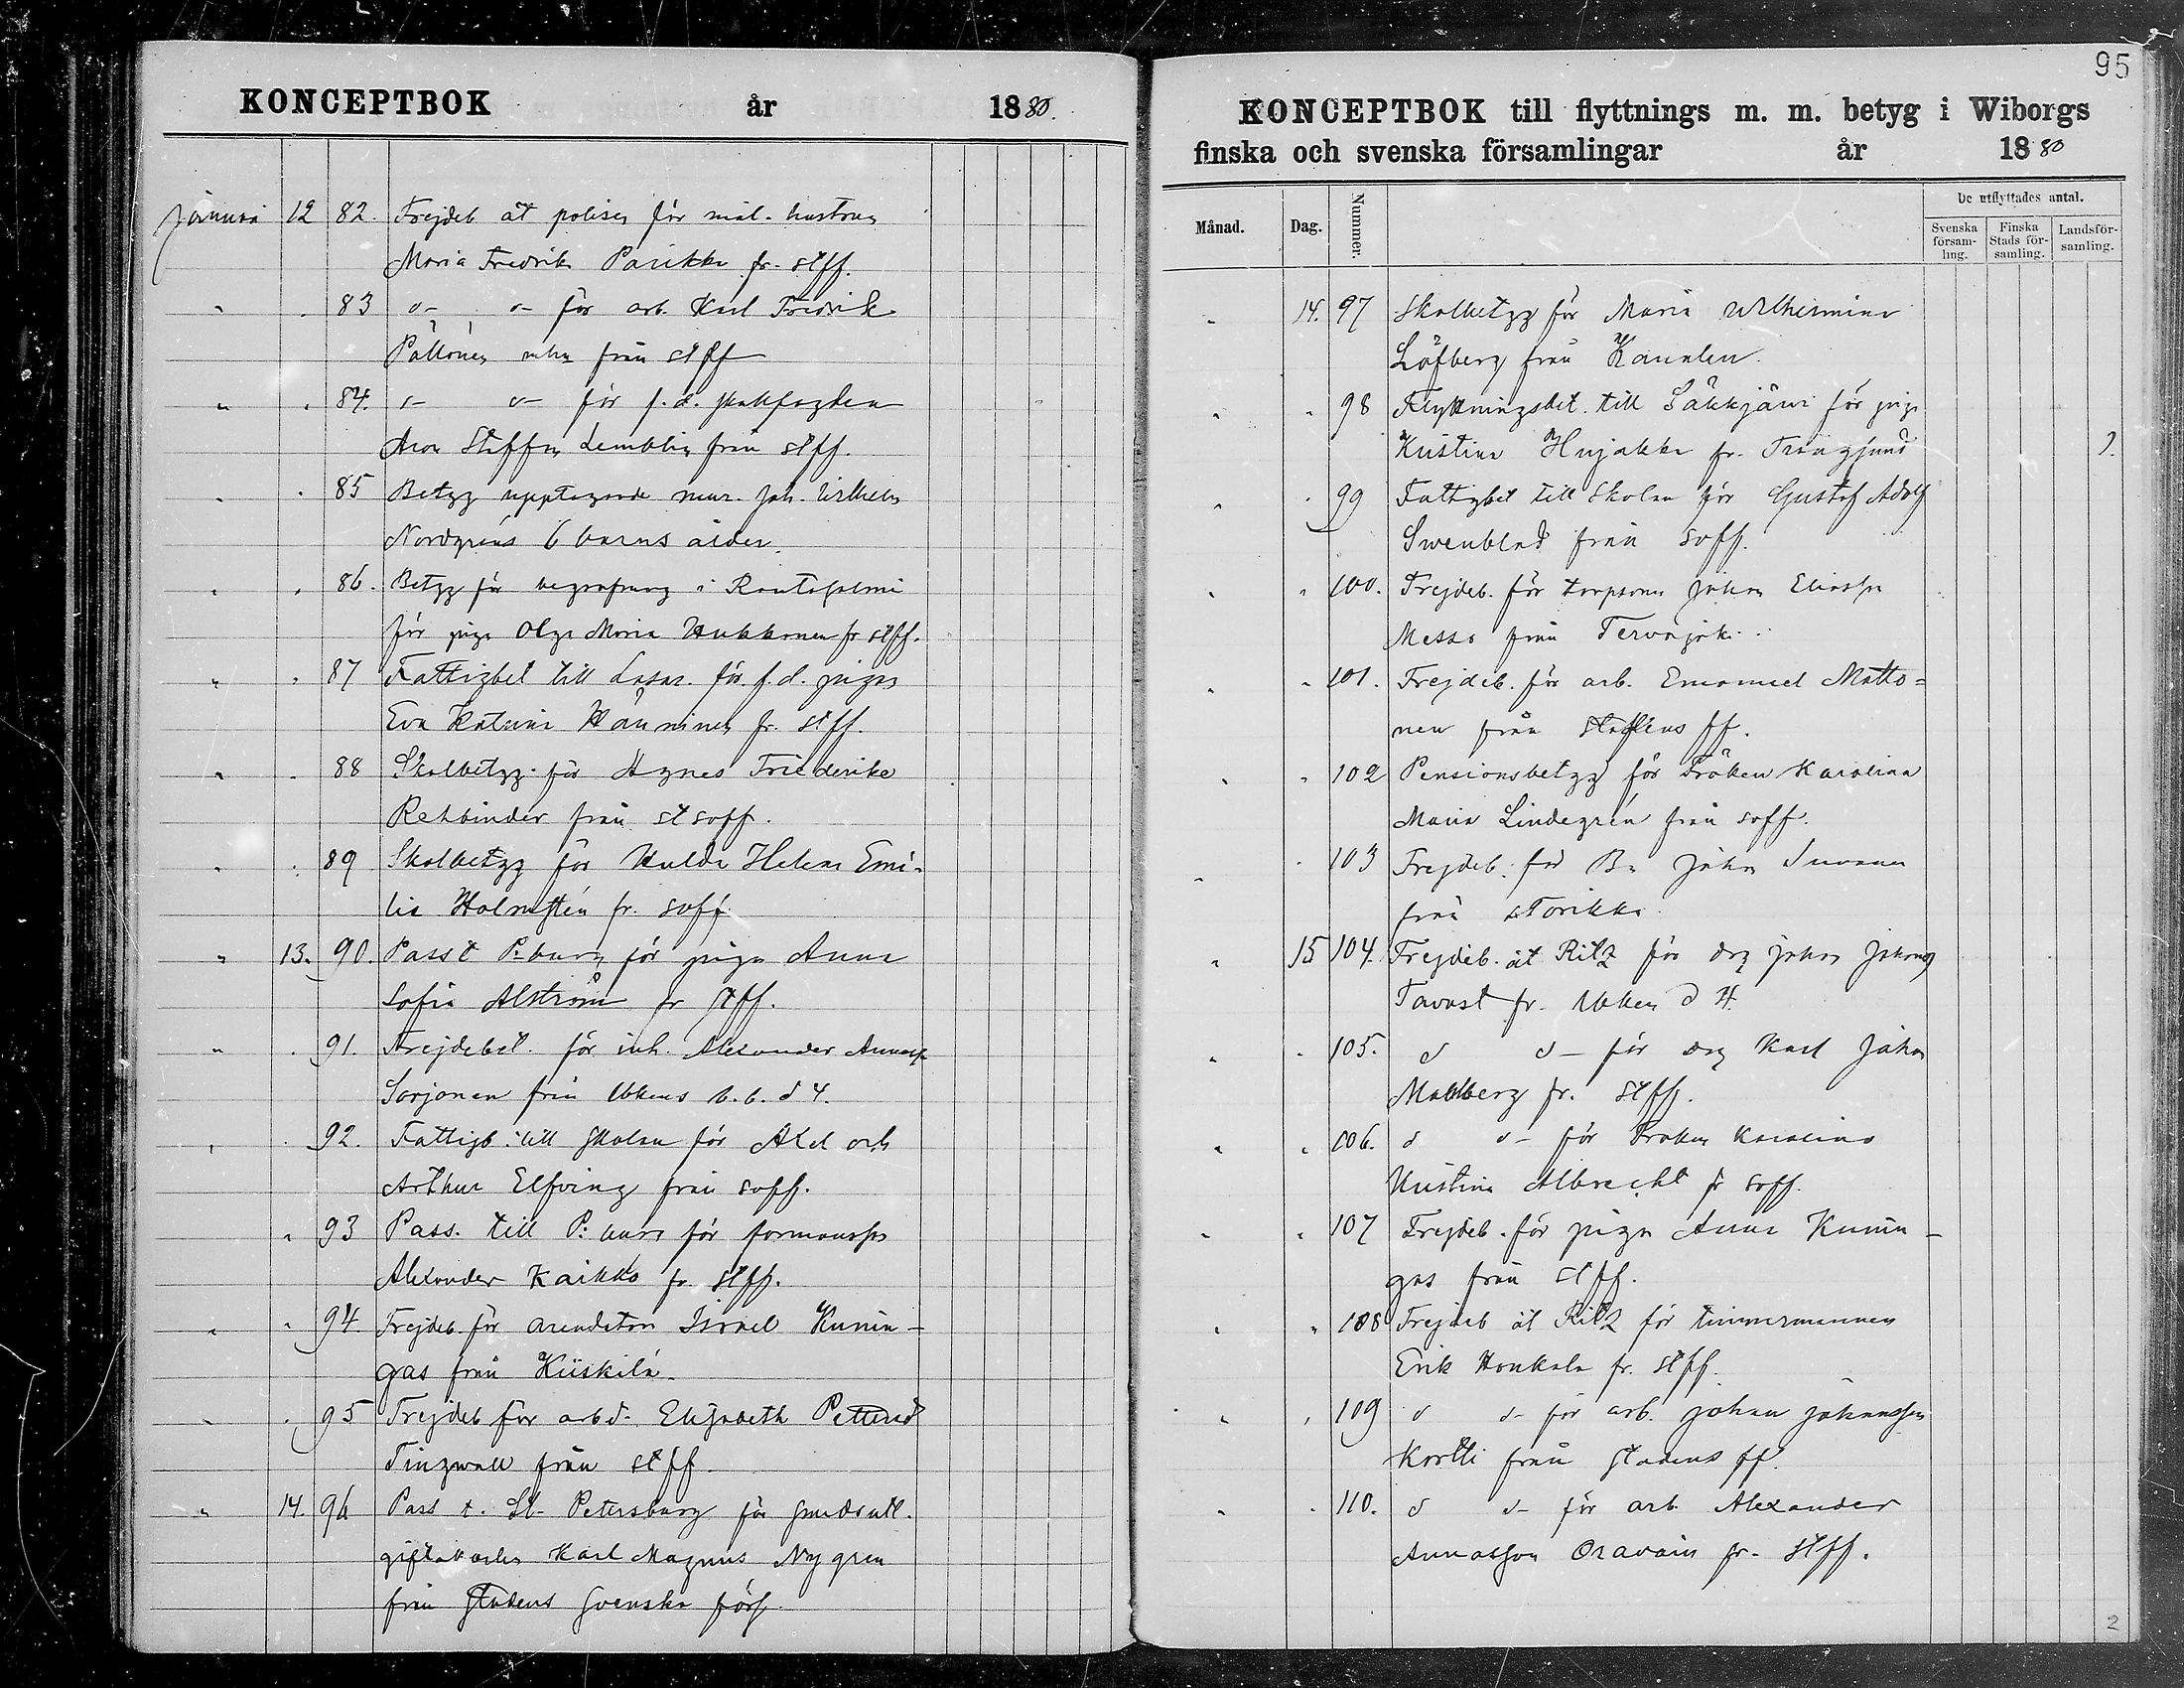 KONCEPTBOK år 1880.
Januari 12 82. Frejdeb åt polisen för mål. hustrun
Maria Fredrika Parikka fr. stff.
" . 83 d- d- för arb. Karl Fredrik
Pällönen från stff
" " 84. d- d- för f.d.
Aron Steffen Lemblin från stff.
" . 85 Betyg upptagande mur. Joh. Wilhelm
Nordgréns 6 barns ålder.
" " 86. Betyg för begrafning i Rantasalmi
för piga Olga Maria Hukkanen fr stff.
" " 87 Fattigbet till Lasar. för f.d. pigan
Eva Katarina Hänninen fr. stff.
" . 88 Skolbetyg för Agnes Friederike
Rehbinder från st soff.
" . 89 Skolbetyg för Hulda Helena Emi-
lia Holmstén fr. soff
" 13. 90. Pass t P:burg för pigan Anna
Sofia Alström fr stff.
" . 91. Frejdebet. för inh. Alexander Annasso
Sorjonen från Ukkens b.b. d 4.
" . 92. Fattigb. till skolan för Axel och
Arthur Elfving från soff.
" 93 Pass. till P:burg för formansson
Alexander Kaikko fr. stff.
" " 94. Frejdeb. för arendatorn Israel Kunin-
gas från Kiiskilä.
" . 95 Frejdeb för arb d. Elisabeth Pettersd
Tingwall från stff.
" 14. 96 Pass t. St. Petersburg för
Karl Magnus Nygren
från stadens Svenska förs.
95
KONCEPTBOK till flyttnings m. m. betyg i Wiborgs
finska och svenska församlingar år 1880
Månad. Dag. Nummer. De utflyttades antal.
Svenska församling. Finska Stads församling. Landsförsamling.
" 14. 97 Skolbetyg för Maria Wilhelmina
Löfberg från Kanalen.
" " 98 Flyttningsbet. till Säkkjärvi för piga
Kristina Hujakka fr. Trångsund 1.
" . 99 Fattigbet till Skolan för Gustaf Adolf
Swenblad från soff.
" " 100. Frejdeb. för torpson Johan Eliasson
Messo från Tervajoki.
" " 101. Frejdeb. för arb. Emanuel Matto-
nen från stadens ff.
" " 102 Pensionsbetyg för Fröken Karolina
Maria Lindegrén från soff.
" . 103 Frejdeb. för B. Johan Suvanen
från Torikka
" 15 104. Frejdeb. åt Ritz för drg Johan Johansson
Tavast fr. Ukken d 4.
" . 105. d d- för drg Karl Johan
Mahlberg fr. stff.
" " 106. d d- för Fröken Karolina
Kristina Albrecht fr soff.
" " 107 Frejdeb. för pigan Anna Kunin-
gas från stff.
" " 108 Frejdeb åt Ritz för timmermannen
Erik Honkala fr. stff.
" " 109 d d- för arb. Johan Johansson
Kortti från stadens ff.
" . 110. d d- för arb. Alexander
Annasson Oravain fr. stff.
2